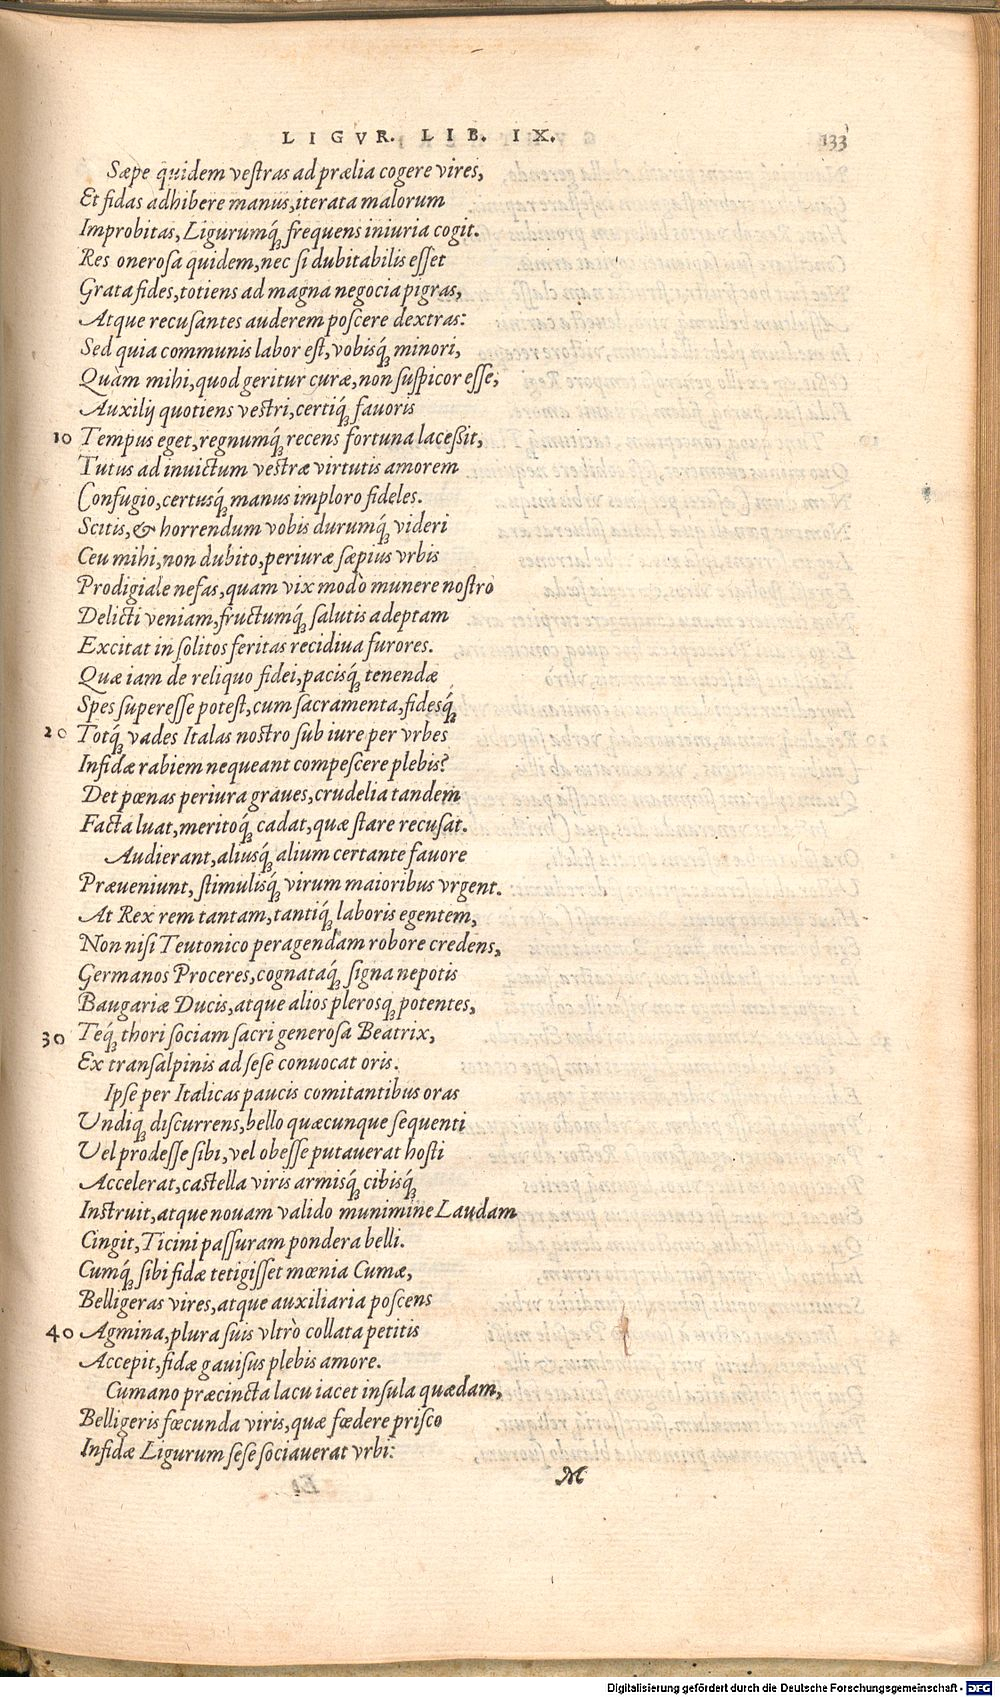 LIGVR. LIB. IX. 133
Sæpe quidem vestras ad prælia cogere vires,
Et fidas adhibere manus, iterata malorum
Improbitas, Ligurumq́; frequens iniuria cogit.
Res onerosa quidem, nec si dubitabilis esset
Grata fides, totiens ad magna negocia pigras,
Atque recusantes auderem poscere dextras:
Sed quia communis labor est, vobisq́; minori,
Quàm mihi, quod geritur curæ, non suspicor esse,
Auxilij quotiens vestri, certiq́; fauoris
10 Tempus eget, regnumq́; recens fortuna lacessit,
Tutus ad inuictum vestræ virtutis amorem
Confugio, certusq́; manus imploro fideles.
Scitis, & horrendum vobis durumq́; videri
Ceu mihi, non dubito, periuræ sæpius vrbis
Prodigiale nefas, quam vix modò munere nostro
Delicti veniam, fructumq́; salutis adeptam
Excitat insolitos feritas recidiua furores.
Quæ iam de reliquo fidei, pacisq́; tenendæ
Spes superesse potest, cum sacramenta, fidesq́;
20 Totq́; vades Italas nostro sub iure per vrbes
Infidæ rabiem nequeant compescere plebis?
Det pœnas periura graues, crudelia tandem
Facta luat, meritoq́; cadat, quæ stare recusat.
Audierant, aliusq́; alium certante fauore
Præueniunt, stimulisq́; virum maioribus vrgent.
At Rex rem tantam, tantiq́; laboris egentem,
Non nisi Teutonico peragendam robore credens,
Germanos Proceres, cognataq́; signa nepotis
Baugariæ Ducis, atque alios plerosq; potentes,
30 Teq́; thori sociam sacri generosa Beatrix,
Ex transalpinis ad sese conuocat oris.
Ipse per Italicas paucis comitantibus oras
Vndiq; discurrens, bello quæcunque sequenti
Vel prodesse sibi, vel obesse putauerat hosti
Accelerat, castella viris armisq́; cibisq́;
Instruit, atque nouam valido munimine Laudam
Cingit, Ticini passuram pondera belli.
Cumq́; sibi fidæ tetigisset mœnia Cumæ,
Belligeras vires, atque auxiliaria poscens
40 Agmina, plura suis vltrò collata petitis
Accepit, fidæ gauisus plebis amore.
Cumano præcincta lacu iacet insula quædam,
Belligeris fœcunda viris, quæ fœdere prisco
Infidæ Ligurum sese sociauerat vrbi:
M
Digitalisierung gefördert durch die Deutsche Forschungsgemeinschaft - DFG